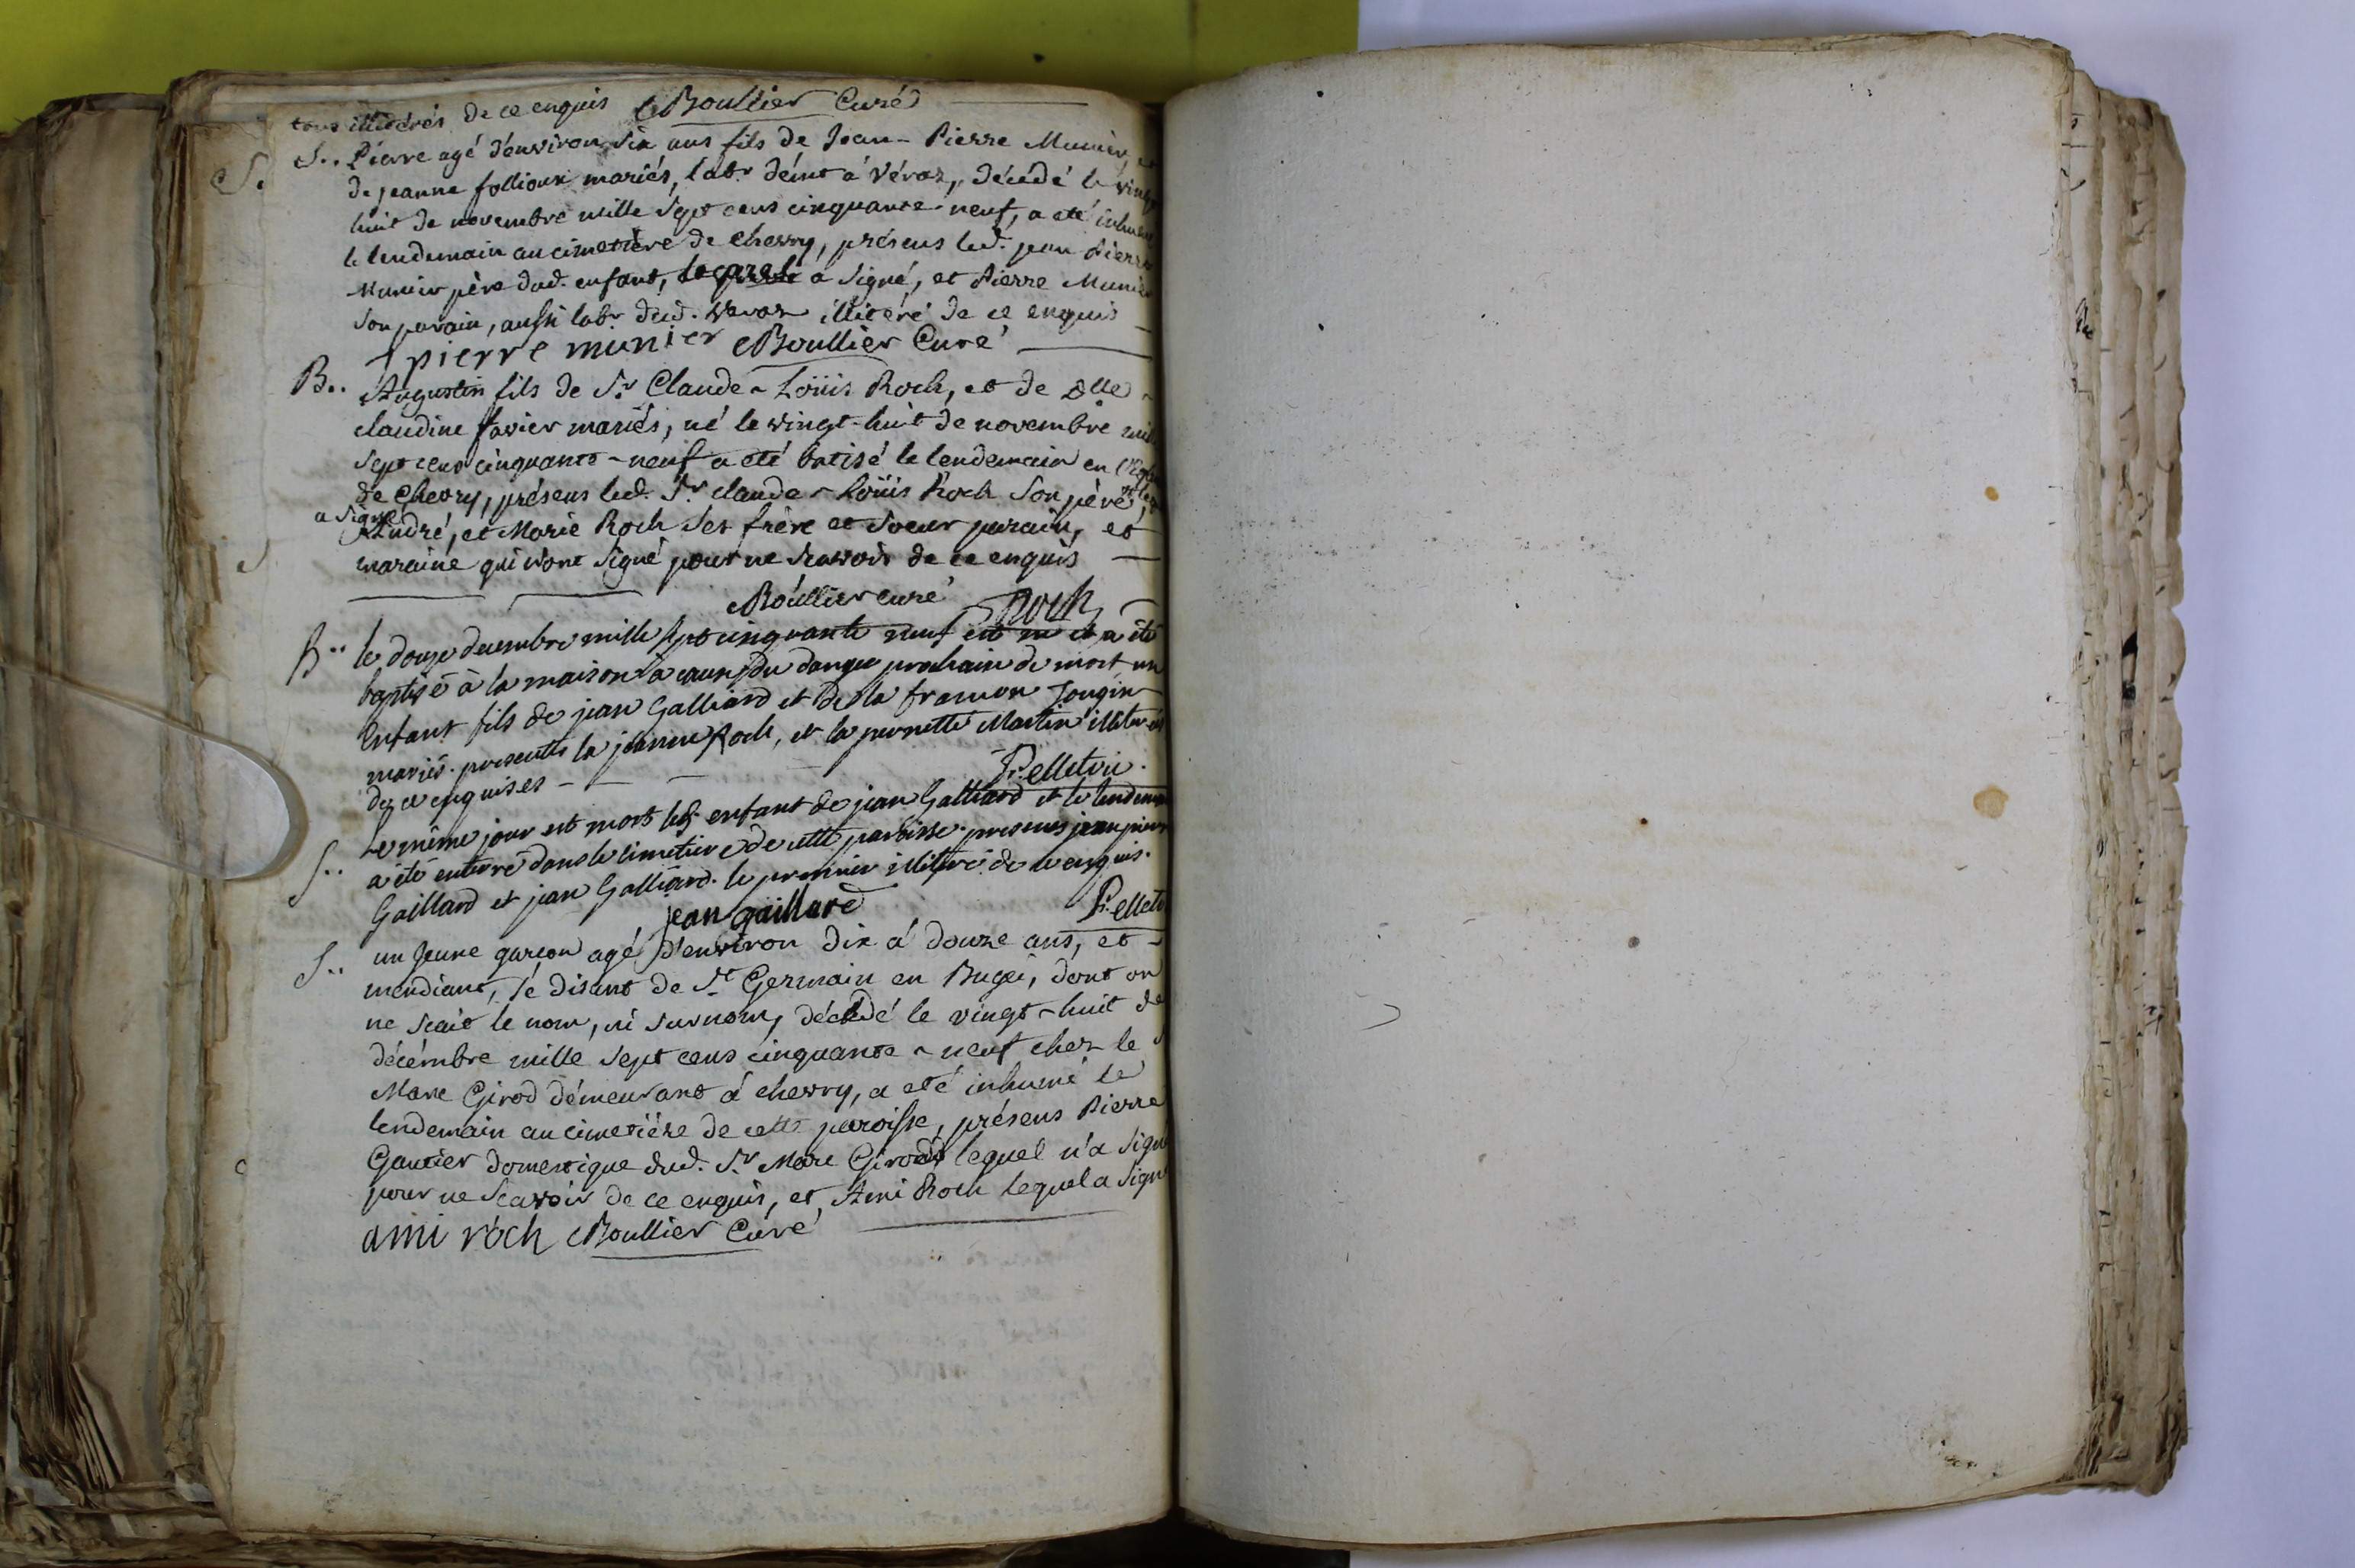 tous illitérés de ce enquis Boullier Curé
S.. Pierre agé d'environ six ans fils de Jean-Pierre Munier, et
de jeanne follioux mariés, labr demt à Véraz, décédé le vingt
huit de novembre mille sept cens cinquante-neuf, a eté inhumé
le lendemain au cimetière de chevry, présens led. jean pierre
Munier père dud. enfant, lequel a signé, et Pierre Munier
son parain, aussi labr dud. Veraz illitéré de ce enquis
pierre munier Boullier Curé
B.. Augustin fils de Sr Claude-Loüis Roch, et de Dlle
claudine favier mariés, né le vingt-huit de novembre mil
sept cens cinquante-neuf a eté batisé le lendemain en l'Eglise
de Chevry, présens led. Sr claude-Loüis Roch son père,
a signé
André, et Marie Roch ses frère et soeur parain, et
maraine qui n'ont signé pour ne scavoir de ce enquis
Boullier curé Roch
B.. le douze decembre mille sept cinquante neuf est né et a été
baptisé à la maison à cause du danger prochain de mort un
enfant fils de jean Galliard et de la Jongin
mariés. presentes la jeanne Roch, et la pernette Martin illiterées
de ce enquises
Pelleton.
S.. Le même jour est mort led. enfant de jean Galliard et le lendemain
a été enterré dans le cimetiere de cette paroisse. presens jean pierre
Gaillard et jean Galliard. le premier illiteré de ce enquis.
jean gaillard Pelleton
S.. un jeune garçon agé d'environ dix à douze ans, et
mendiant, se disant de St Germain en Bugei, dont on
ne scait le nom, ni surnom, décédé le vingt-huit de
décémbre mille sept cens cinquante-neuf chez le S
Marc Girod démeurant à chevry, a eté inhumé le
lendemain au cimetière de cette paroisse, présens Pierre
Gautier domestique dud. Sr Marc Girod lequel n'a signé
pour ne scavoir de ce enquis, et Ami Roch lequel a signé
ami roch Boullier Curé